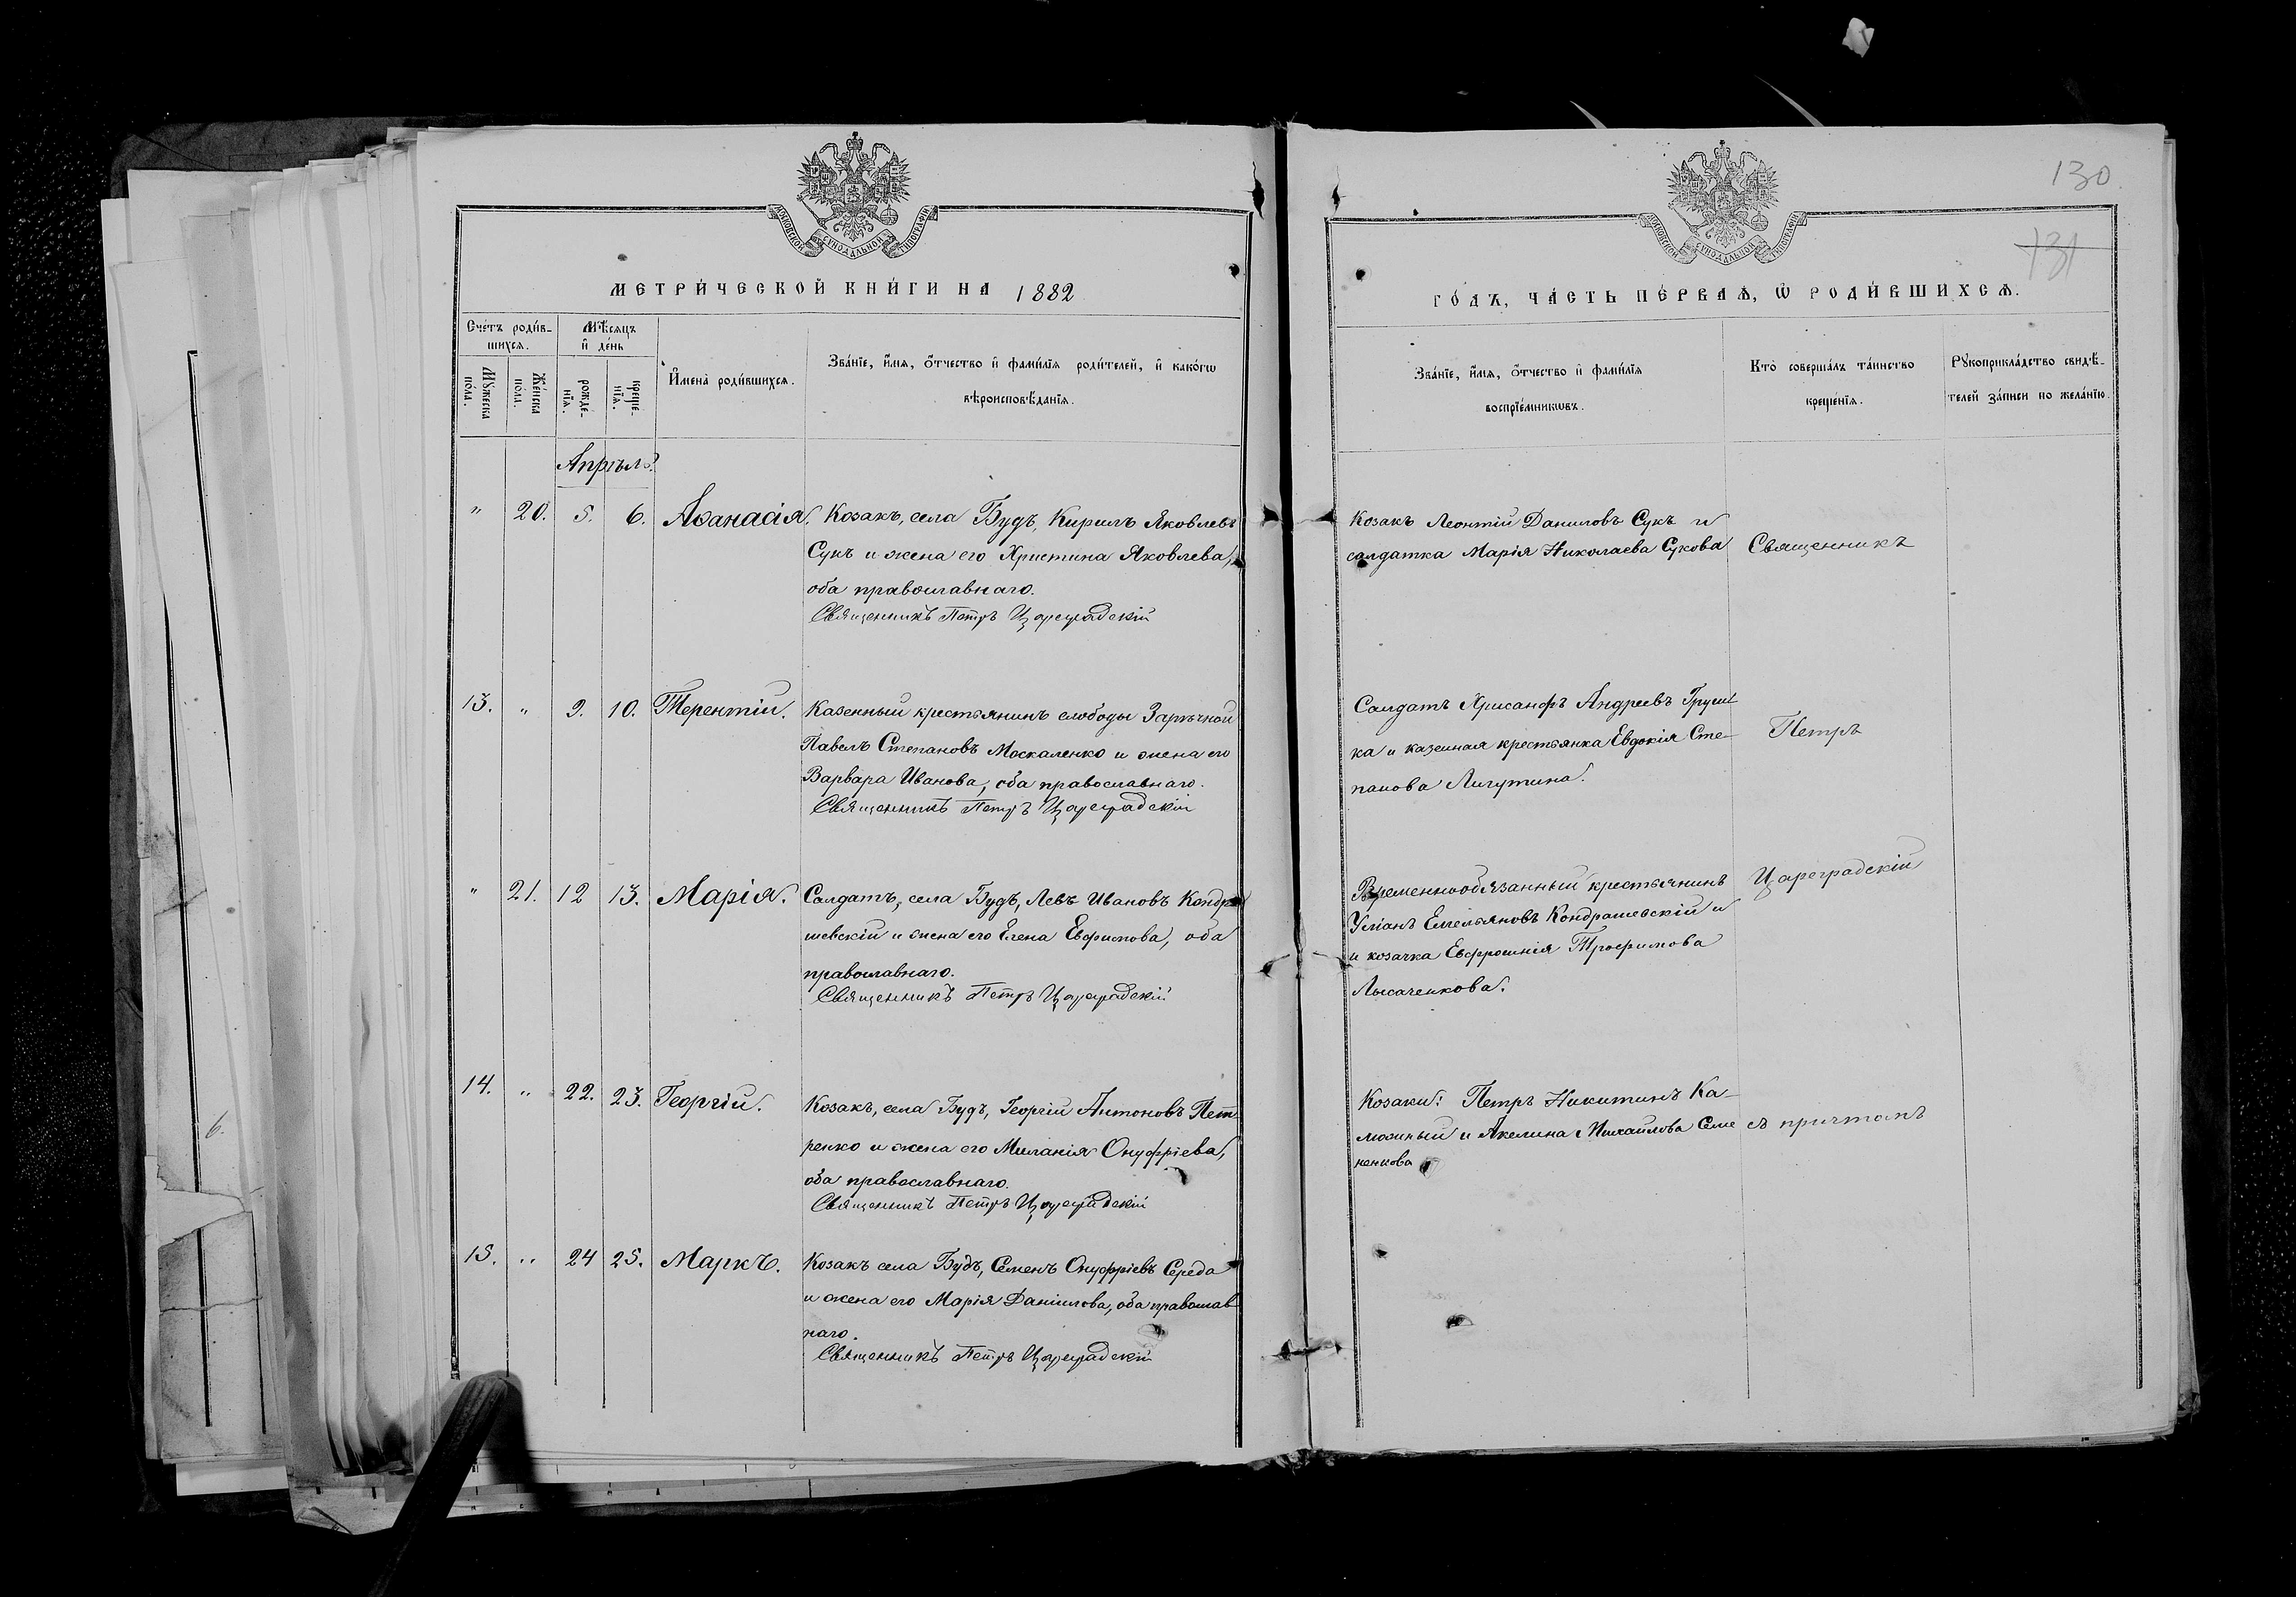 МОСКОВСКОЙ СѴНОДАЛЬНОЙ ТИПОГРАФІИ
МЕТРИ́ЧЕСКОЙ КНИ́ГИ НА 1882
Сче́тъ роди́в-
шихсѧ.
Мѣ́сѧцъ
и҆ де́нь
Мꙋ́жеска
по́ла.
Же́нска
по́ла.
рожде-
нїѧ.
креще-
нїѧ.
И҆мена̀ роди́вшихсѧ.
Зва́нїе, и҆́мѧ, ѻ҆́тчество и҆ фами́лїѧ роди́телей, и҆ како́гѡ
вѣроисповѣ́данїѧ.
Апрѣль.
" 20. 5. 6. Аѳанасія. Козакъ, села Будъ, Кирилъ Яковлевъ
Сукъ и жена его Христина Яковлева,
оба православнаго.
Священникъ Петръ Цареградскій
13. " 9. 10. Терентій. Казенный крестьянинъ слободы Зарѣчной
Павелъ Степановъ Москаленко и жена его
Варвара Иванова, оба православнаго.
Священникъ Петръ Цареградскій
" 21. 12 13. Марія. Солдатъ, села Будъ, Левъ Ивановъ Кондра
шевскій и жена его Елена Евфимова, оба
православнаго.
Священникъ Петръ Цареградскій
14. " 22. 23. Георгій. Козакъ, села Будъ, Георгій Антоновъ Пет
ренко и жена его Миланія Онуфріева,
оба православнаго.
Священникъ Петръ Цареградскій
15. " 24 25. Маркъ. Козакъ села Будъ, Семенъ Онуфріевъ Середа
и жена его Марія Даніилова, оба православ
наго.
Священникъ Петръ Цареградскій
6.
130.
131
МОСКОВСКОЙ СѴНОДАЛЬНОЙ ТИПОГРАФІИ
ГО́ДЪ, ЧА́СТЬ ПЕ́РВАѦ, Ѡ҆ РОДИ́ВШИХСѦ.
Зва́нїе, и҆́мѧ, ѻ҆́тчество и҆ фами́лїѧ
воспрїе́мникѡвъ.
Кто̀ соверша́лъ та́инство
креще́нїѧ.
Рꙋкоприкла́дство свидѣ́-
телей за́писи по жела́нїю.
Козакъ Леонтій Даниловъ Сукъ и
салдатка Марія Николаева Сукова
Священникъ
Солдатъ Хрисанфъ Андреевъ Груш
ка и казенная крестьянка Евдокія Сте-
панова Личутина.
Петръ
Временнообязанный крестьянинъ
Уліанъ Емельяновъ Кондрашевскій и
и козачка Евфросинія Трофимова
Лысаченкова.
Цареградскій
Козаки: Петръ Никитинъ Ка-
и Акелина Михайлова Семе
ненкова
съ причтомъ